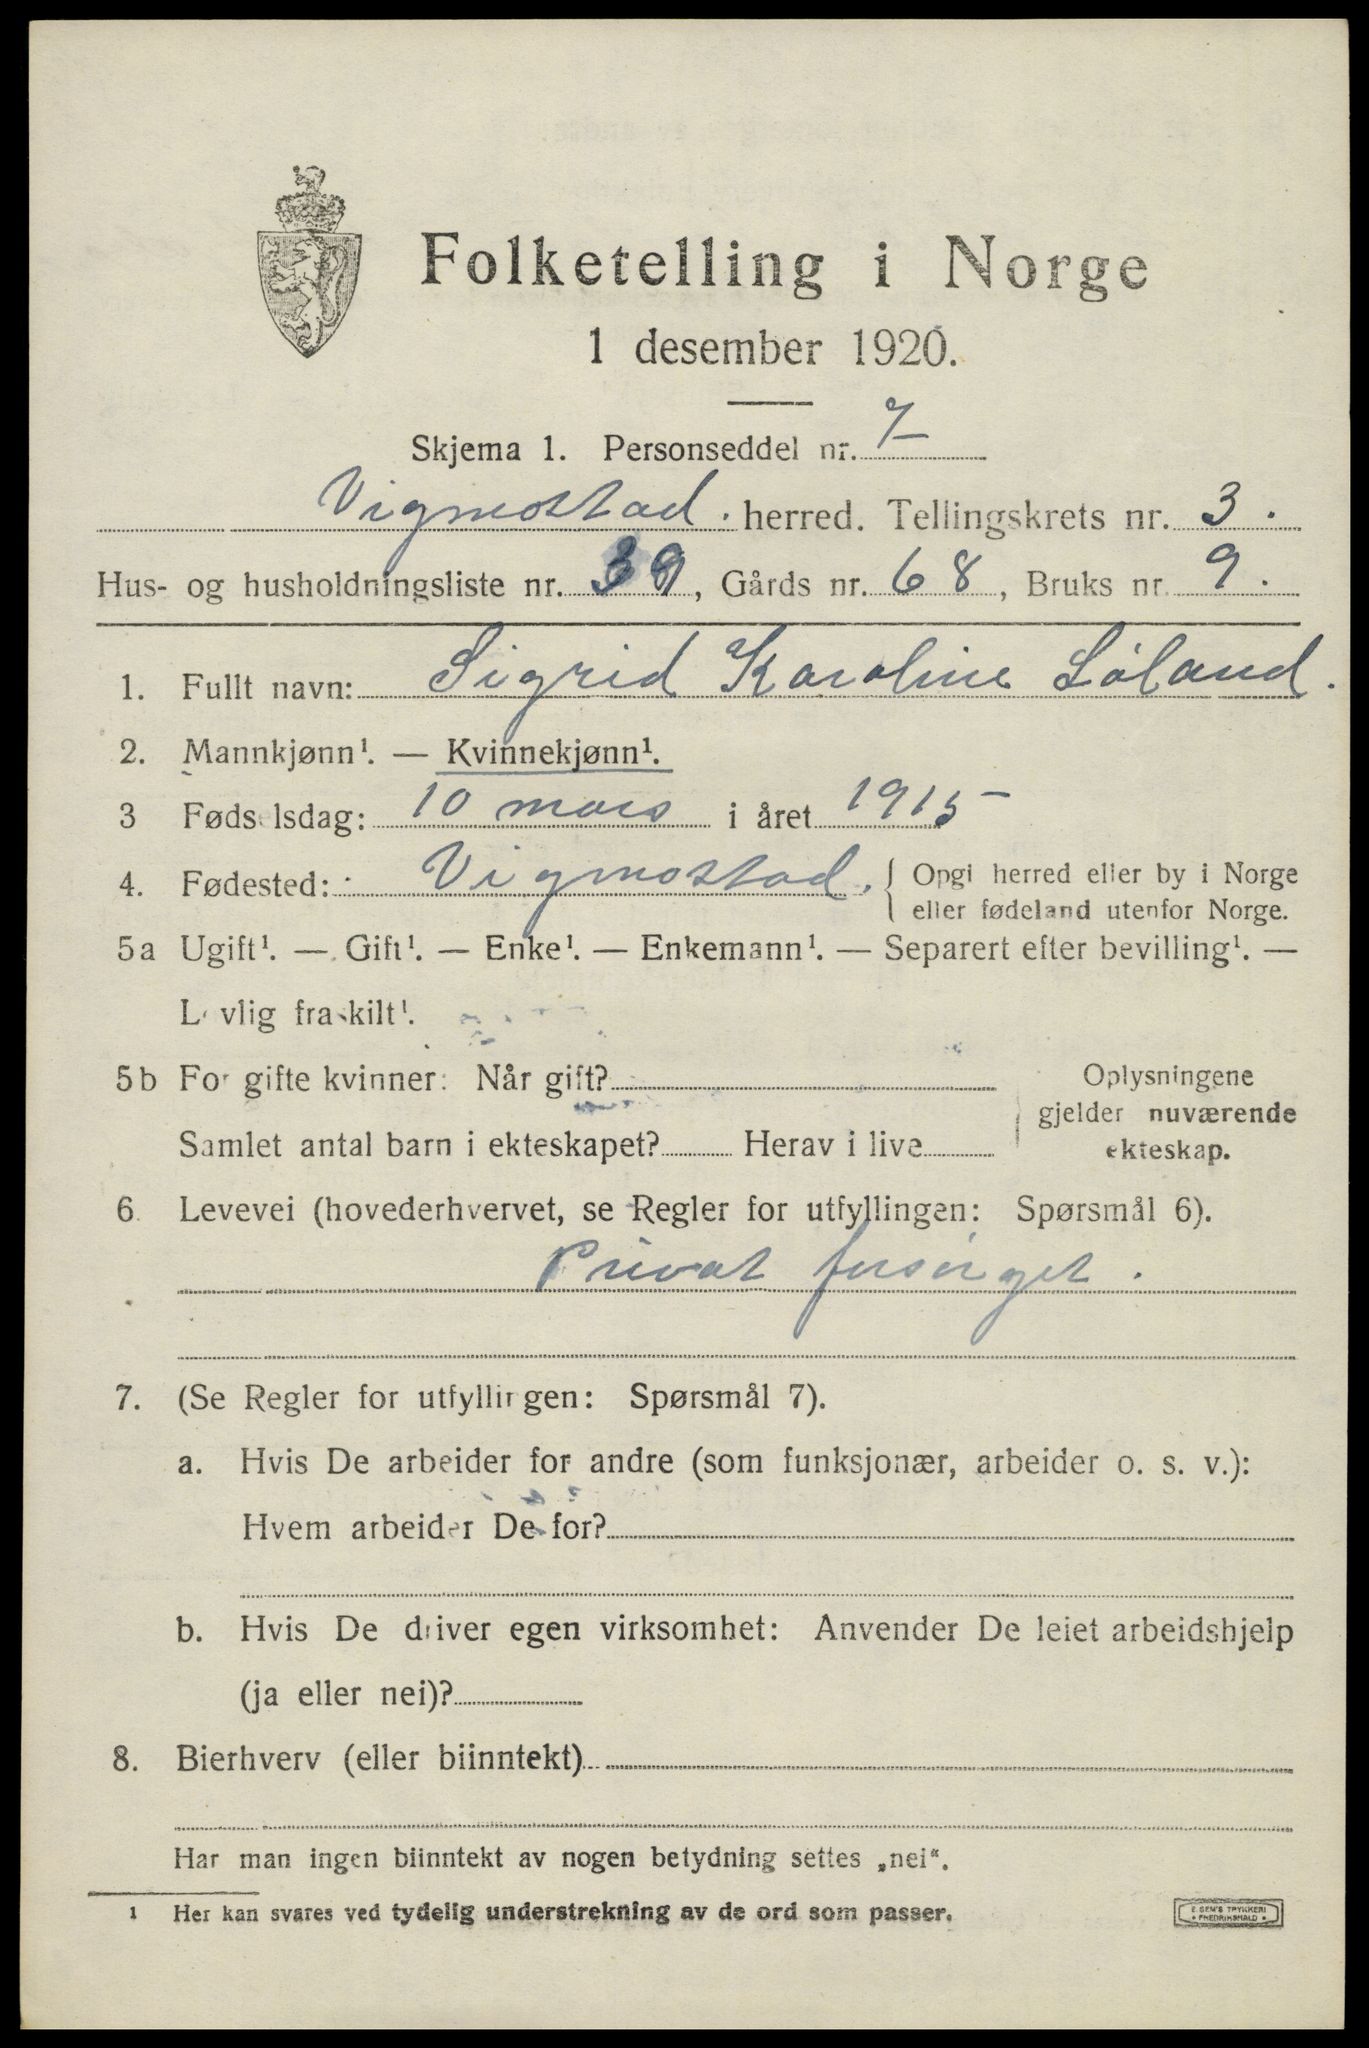 Folketelling i Norge
1 desember 1920.
Skjema 1. Personseddel nr. 7
Vigmostad. herred. Tellingskrets nr. 3.
Hus- og husholdningsliste nr. 39, Gårds nr. 68, Bruks nr. 9.
1. Fullt navn: Sigrid Karoline Løland.
2. Mannkjønn¹. — Kvinnekjønn¹.
3 Fødselsdag: 10 mars i året 1915
4. Fødested: Vigmostad. { Opgi herred eller by i Norge
eller fødeland utenfor Norge.
5a Ugift¹. — Gift¹. — Enke¹. — Enkemann¹. — Separert efter bevilling¹. —
Lovlig fraskilt¹.
5b For gifte kvinner: Når gift?
Samlet antal barn i ekteskapet? Herav i live
Oplysningene
gjelder nuværende
ekteskap.
6. Levevei (hovederhvervet, se Regler for utfyllingen: Spørsmål 6).
Privat forsørget.
7. (Se Regler for utfyllingen: Spørsmål 7).
a. Hvis De arbeider for andre (som funksjonær, arbeider o. s. v.):
Hvem arbeider De for?
b. Hvis De driver egen virksomhet: Anvender De leiet arbeidshjelp
(ja eller nei)?
8. Bierhverv (eller biinntekt)
Har man ingen biinntekt av nogen betydning settes „nei“.
1 Her kan svares ved tydelig understrekning av de ord som passer.
E. SEM'S TRYKKERI
• FREDRIKSHALD •